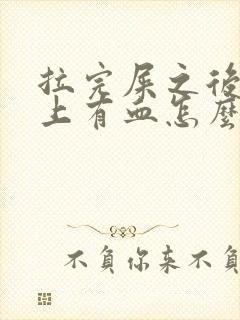 拉完屎之後
上有血怎麼
不負你来不負